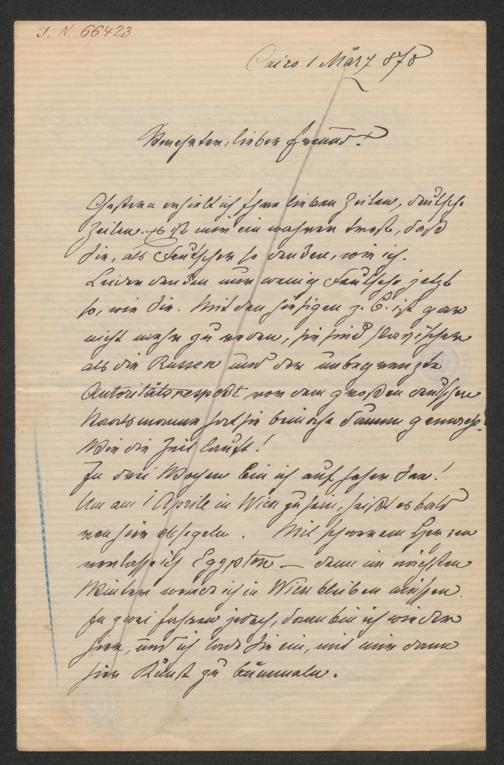 J. N. 66423
Cairo 1 März 878
Verehrter, lieber Freund!
Gestern erhielt ich Ihre lieben Zeilen, deutsche
Zeilen. Es ist mir ein wahrer Trost, daß
Sie, als Deutscher so denken, wie ich.
Leider denken nur wenig Deutsche jetzt
so, wie Sie. Mit den hiesigen z. B. ist gar
nicht mehr zu reden, sie sind slavischer
als die Russen und der unbegrenzte
Autoritätsrespekt vor dem großen deutschen
Staatsmanne hat sie beinahe dumm gemacht.
Wie die Zeit lauft!
In drei Wochen bin ich auf hoher See!
Um am 1 Aprile in Wien zu sein, heißt es bald
von hier absegeln. Mit schwerem Herzen
verlasse ich Egypten – denn im nächsten
Winter werde ich in Wien bleiben müssen.
In zwei Jahren jedoch, dann bin ich wieder
hier, und ich lade Sie ein, mit mir dann
hier Kunst zu bummeln.